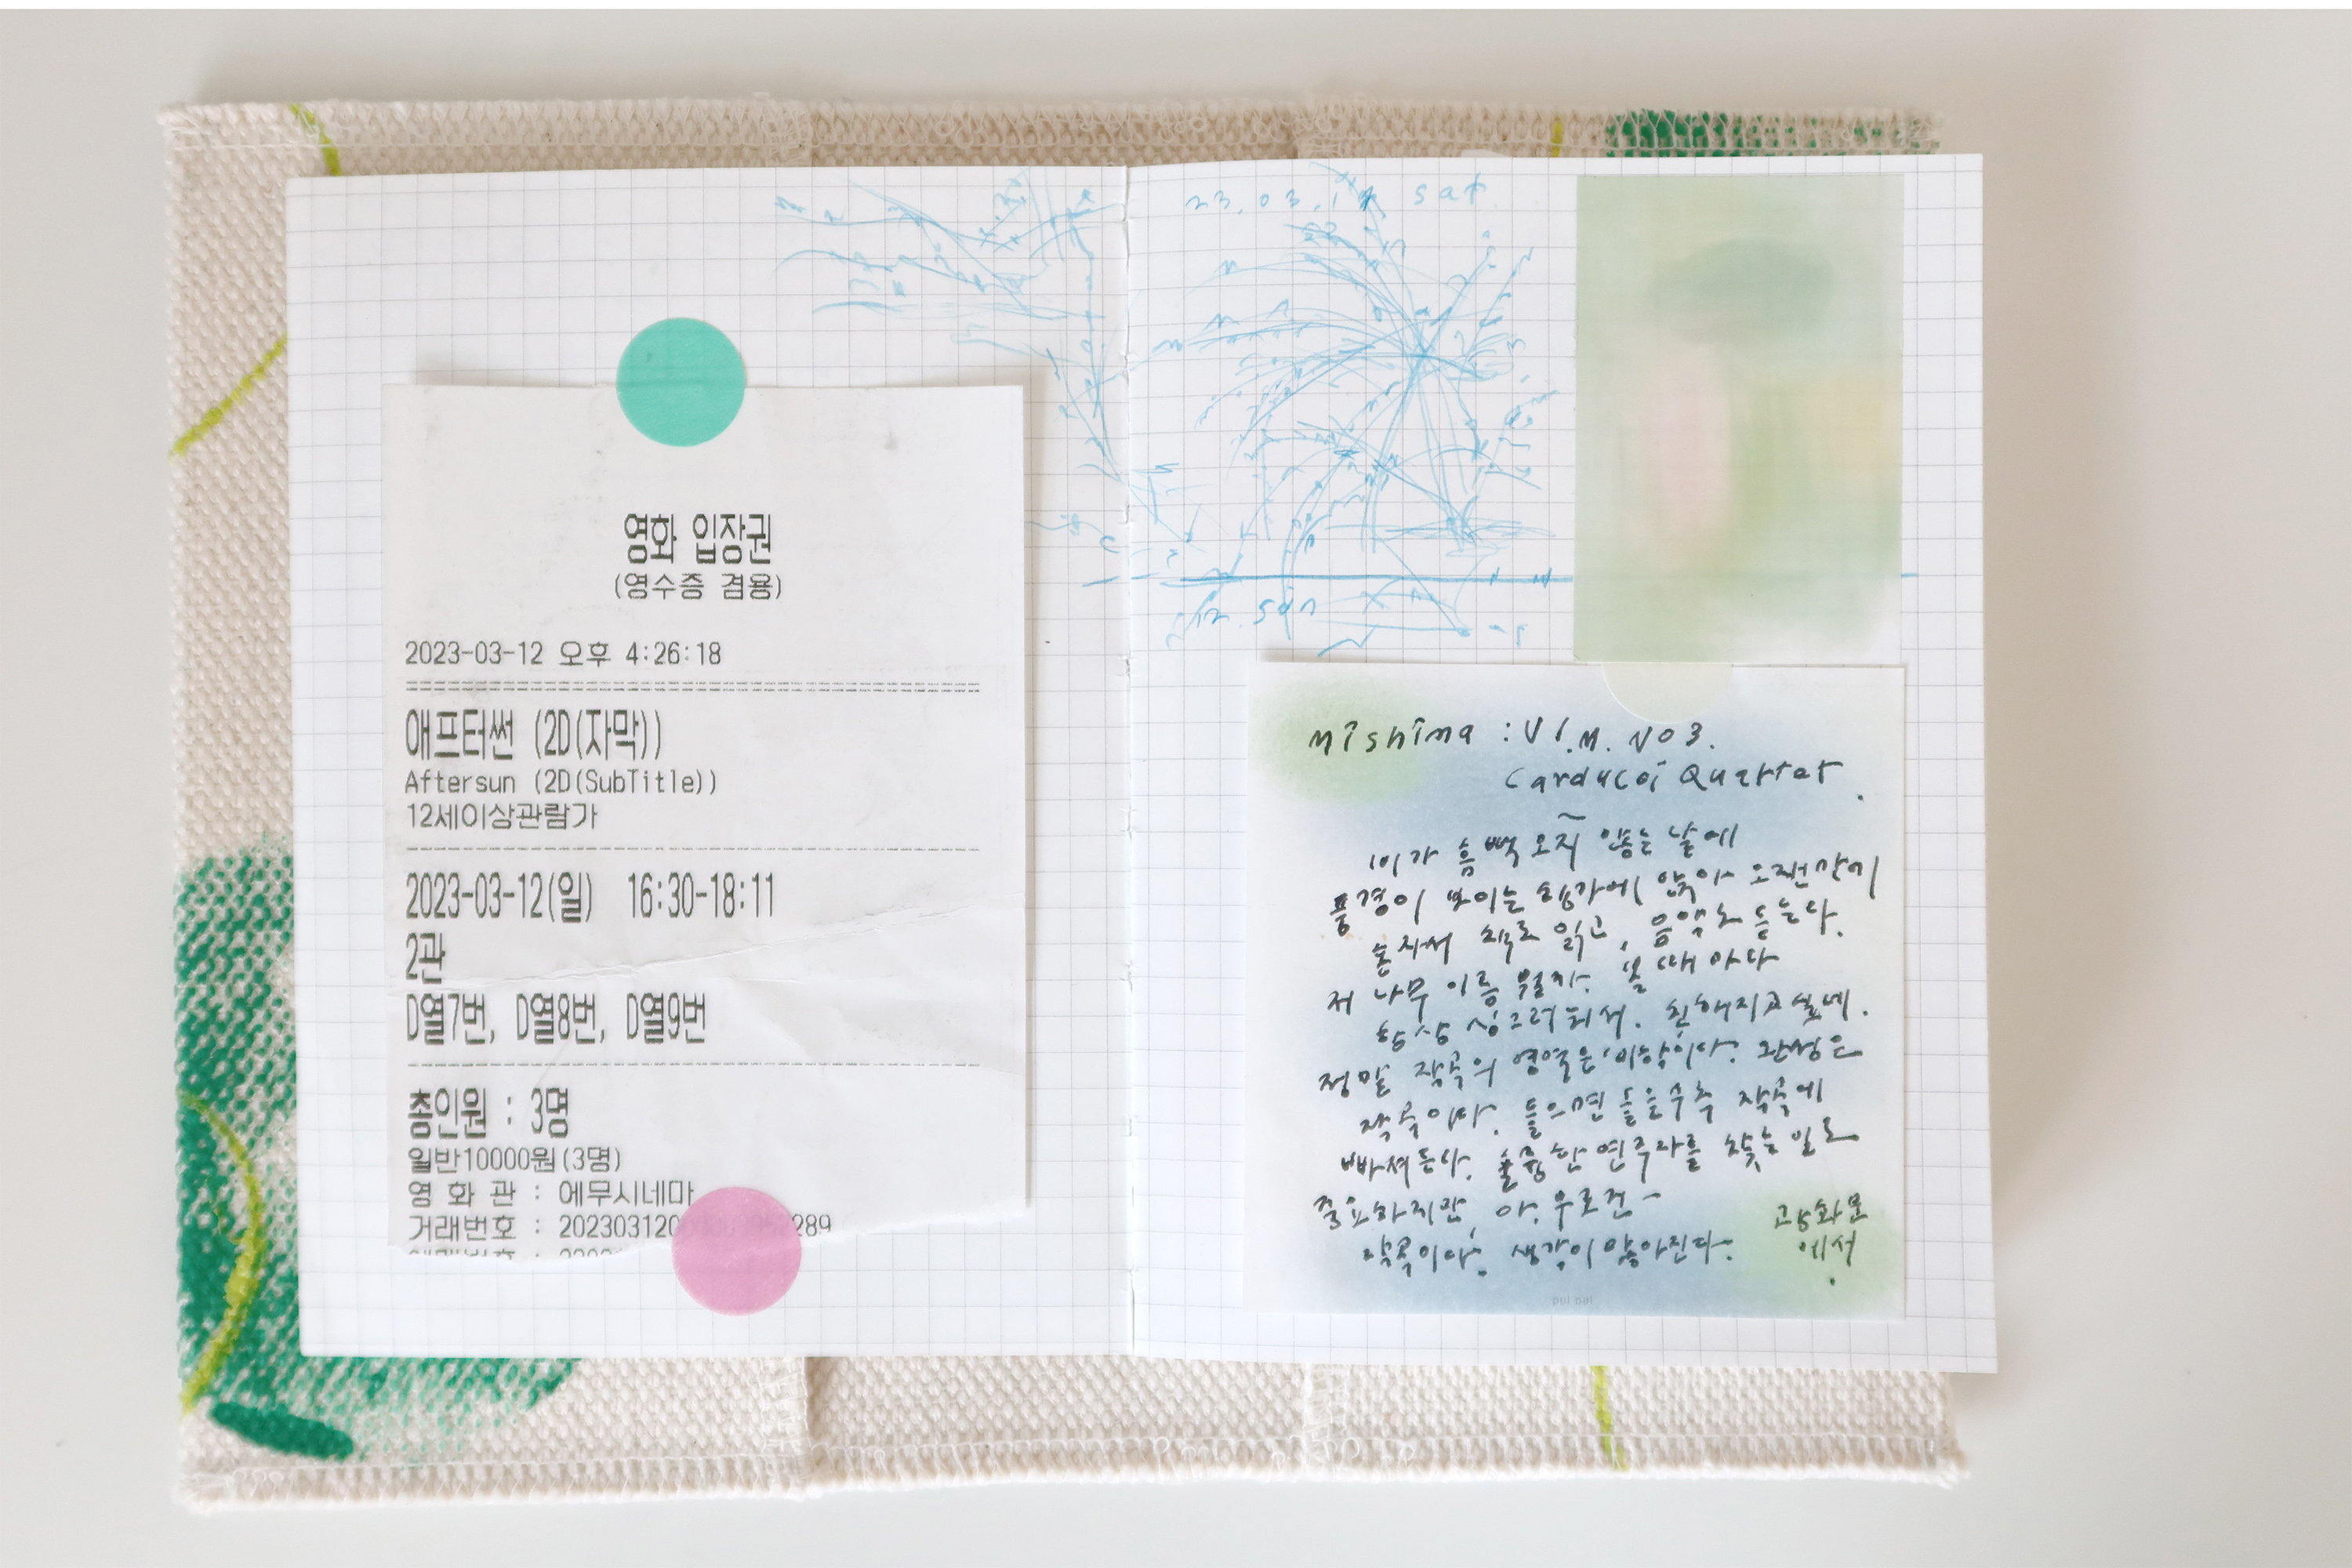 영화 입장권
(영수증 겸용)
2023-03-12 오후 4:26:18
애프터썬 (2D(자막))
Aftersun (2D(SubTitle))
12세이상관람가
2023-03-12(일) 16:30-18:11
2관
D열7번, D열8번, D열9번
총인원 : 3명
일반10000원(3명)
영 화 관 : 에무시네마
거래번호 :
sat
12. sun
Mishima : V1.M. NO3.
Carducci Quartet.
비가 흠뻑 오지 않는 날에
풍경이 보이는 창가에 앉아 오랜만에
혼자서 책도 읽고, 음악도 듣는다.
저 나무 이름 뭘까. 볼 때 마다
항상 싱그러워서. 친해지고 싶네.
정말 작곡의 영역은 '미학이다. 완성은
작곡이다. 들으면 들을수록 작곡에
빠져든다. 훌륭한 연주자를 찾는 일도
중요하지만, 아. 무조건~
작곡이다. 생각이 많아진다.
광화문
에서.